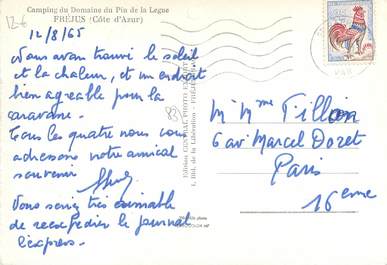 Camping du Domaine du Pin de la Legue
FRÉJUS (Côte d'Azur)
12/8/65
Nous avons trouvé le soleil
et la chaleur, et un endroit
bien agréable pour la
caravane.
Tous les quatre nous vous
adressons notre amical
souvenir
Vous seriez très aimable
de réexpédier le journal
l'express.
83
Edition CENTRAL PHOTO
1, Bld. de la Libération - FRÉJUS
M. Mme Tillion
6 av Marcel Doret
Paris
16 eme
VAR